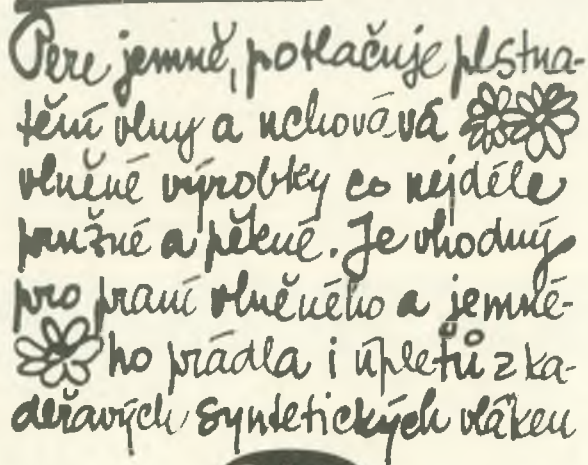 Pere jemně, potlačuje plstna-
tění vlny a uchovává
vlněné výrobky co nejdéle
pružné a pěkné. Je vhodný
pro praní vlněného a jemné-
ho prádla i úpletů z ka-
deřavých syntetických vláken